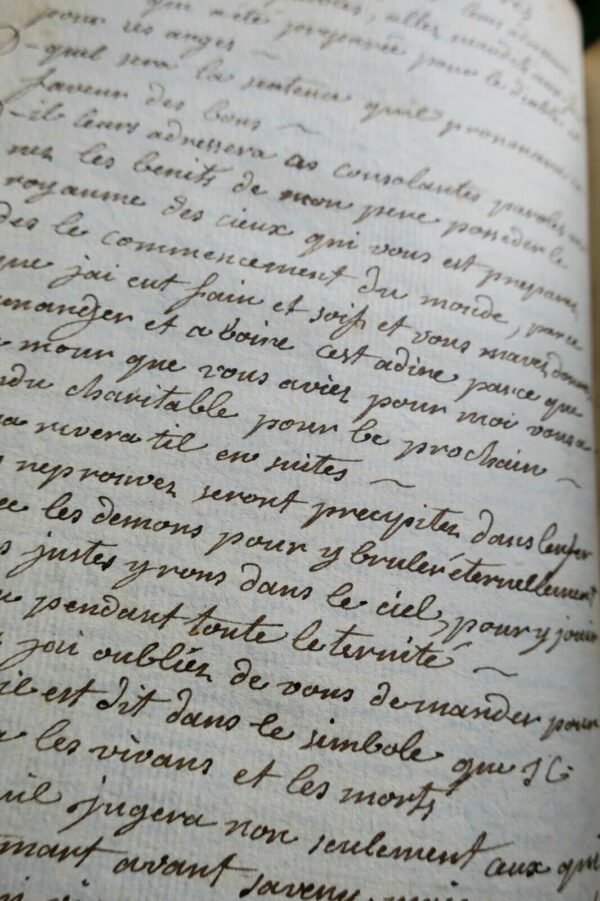 que a été preparée pour le diable et
pour ses anges ~
-quel sera la sentence quil prononcera en
faveur des bons ~
-il leurs adressera ces consolantes paroles
nez les benits de mon pere posseder le
royaume des cieux qui vous est preparez
des le commencement du monde, parce
que jai eut fain et soif et vous mavez donnez
manger et a boire cest adire parce que
mour que vous aviez pour moi vous a
ndu charitable pour le prochain ~
arivera til en suites ~
reprouvez seront precipitez dans lenfer
les demons pour y bruler éternellement
justes yrons dans le ciel, pour y jouir
pendant toute leternité ~
jai oubliez de vous demander pour
il est dit dans le simbole que JC
les vivans et les morts
uil jugera non seulement ceux qui
mort avant